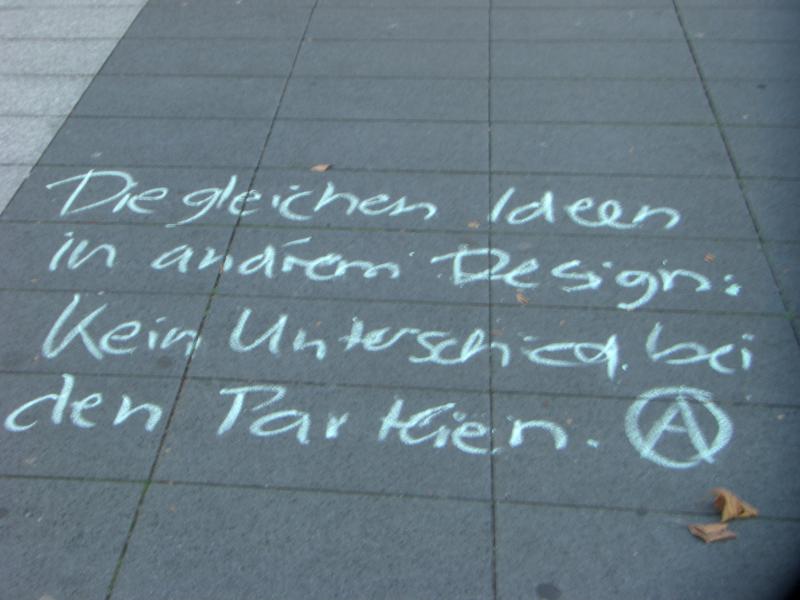 Die gleichen Ideen
in andrem Design:
Kein Unterschied bei
den Parteien. Ⓐ